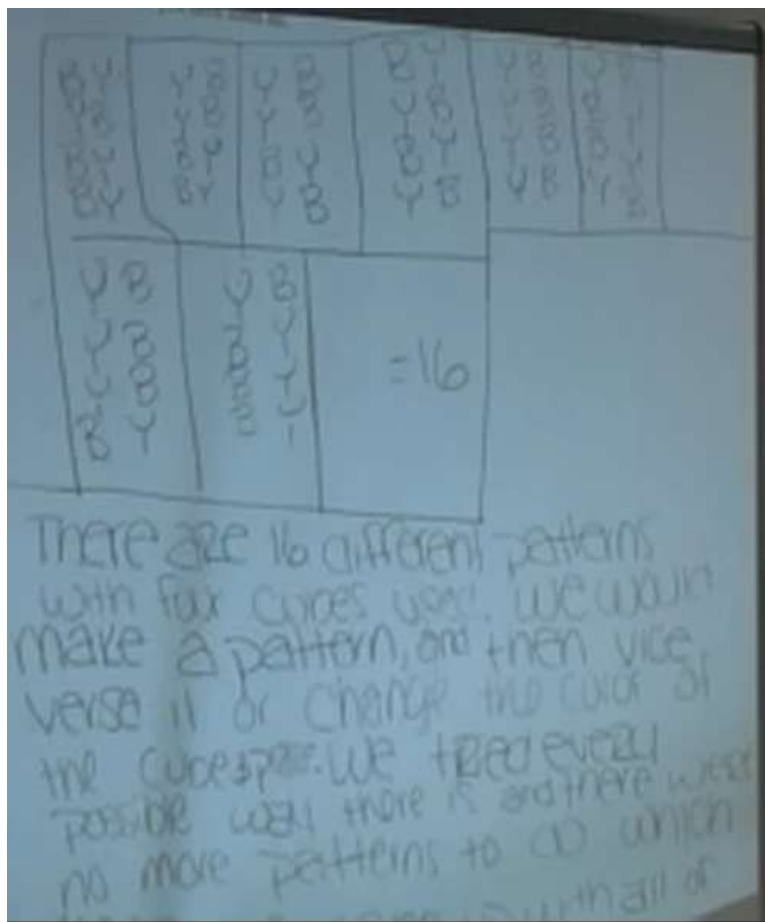 B Y Y B Y B B Y Y B Y B
Y B Y B Y B Y B Y B B Y
B Y B Y B Y B Y Y B B Y
B Y B Y Y B Y B Y B Y B
Y B Y B
Y B B Y
Y B B Y =16
B Y B Y
There are 16 different patterns
with four cubes used. We would
make a pattern, and then vice
verse it or change the color of
the cubes. We tried every
possible way there is and there were
no more patterns to do which
with all of